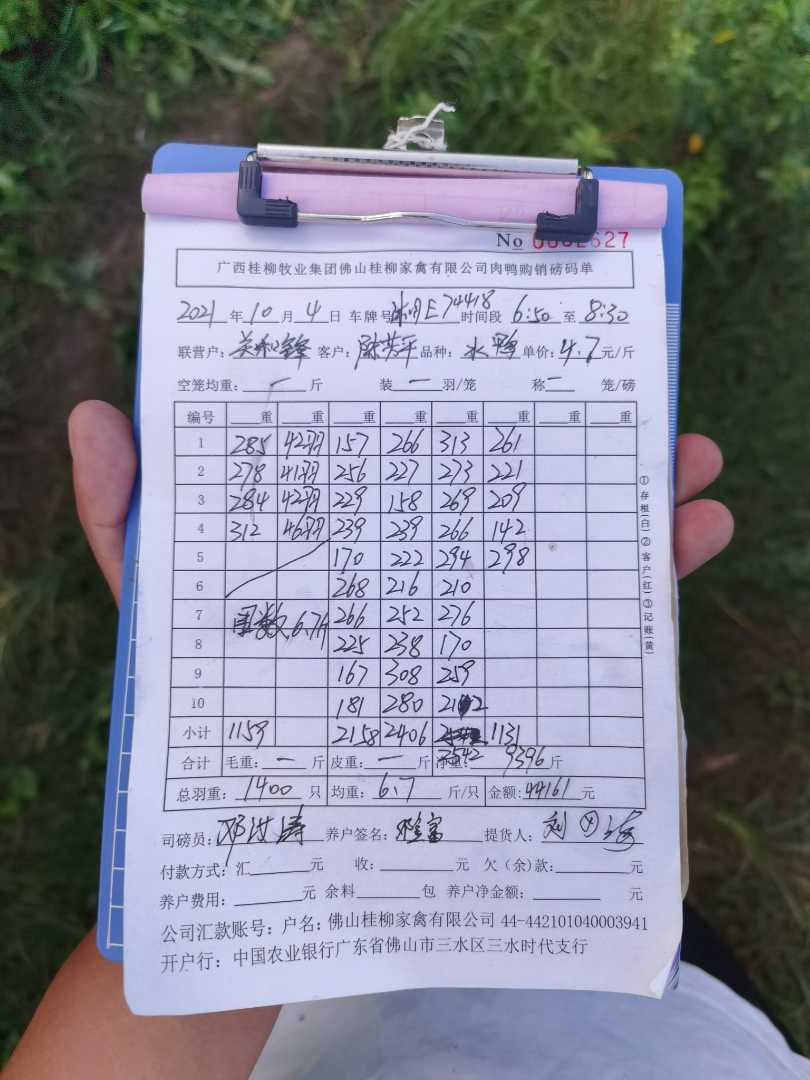 No 0002627
广西桂柳牧业集团佛山桂柳家禽有限公司肉鸭购销磅码单
2021 年 10 月 4 日 车牌号 E74418 时间段 6:50 至 8:30
联营户: 客户: 品种: 水鸭 单价: 4.7 元/斤
空笼均重: 一 斤 装 一 羽/笼 称 一 笼/磅
编号 重 重 重 重 重 重 重 重
1 285 42羽 157 266 313 261
2 278 41羽 256 227 273 221
3 284 42羽 229 158 269 209
4 312 46羽 239 239 266 142
5 170 222 294 298
6 268 216 210
7 6.78 266 252 276
8 225 238 170
9 167 308 259
10 181 280 212
小计 1159 2158 2406 1131
2542
合计 毛重: 一 斤 皮重: 一 斤 净重: 9396 斤
总羽重: 1400 只 均重: 6.7 斤/只 金额: 44161 元
司磅员: 养户签名: 提货人:
付款方式: 汇 元 收: 元 欠(余)款: 元
养户费用: 元 余料 包 养户净金额: 元
公司汇款账号: 户名: 佛山桂柳家禽有限公司 44-442101040003941
开户行: 中国农业银行广东省佛山市三水区三水时代支行
①存根(白)②客户(红)③记账(黄)